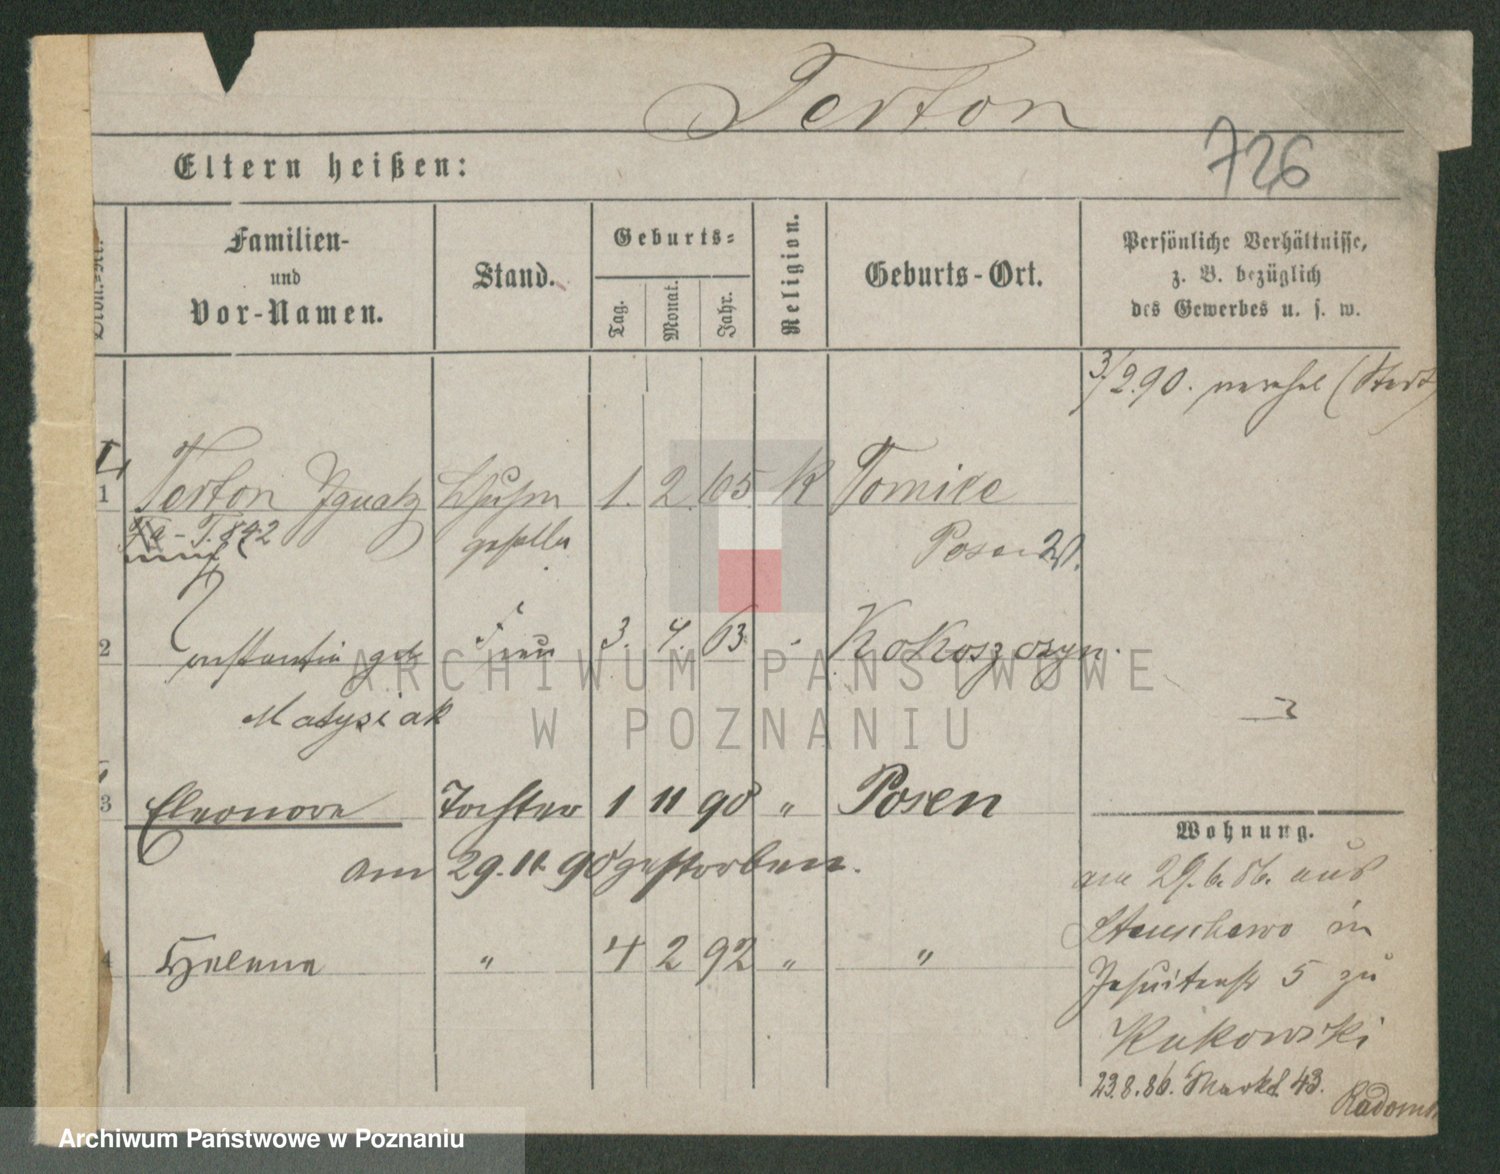 Terton
726
Eltern heißen:
Familien-
und
Vor-Namen.
Stand.
Geburts-
Tag.
Monat.
Jahr.
Religion.
Geburts-Ort.
Persönliche Verhältnisse,
z. B. bezüglich
des Gewerbes u. s. w.
3/2.90. (Stadt)
1 Terton Ignatz 1. 2. 65. K Tomice
T. 842 geselle Posen
2 geb. Frau 3. 4. 63. Kokoszczyn.
Matysiak
3 Eleonore Tochter 1 11 90 " Posen
am 29. 11. 90 gestorben.
4 Helene " 4 2 92 " "
Wohnung.
am 29.6.86. aus
Stenschewo in
Jesuitenstr 5 zu
Kukowski
23.8.86. Markt 43.
ARCHIWUM PAŃSTWOWE
W POZNANIU
Archiwum Państwowe w Poznaniu